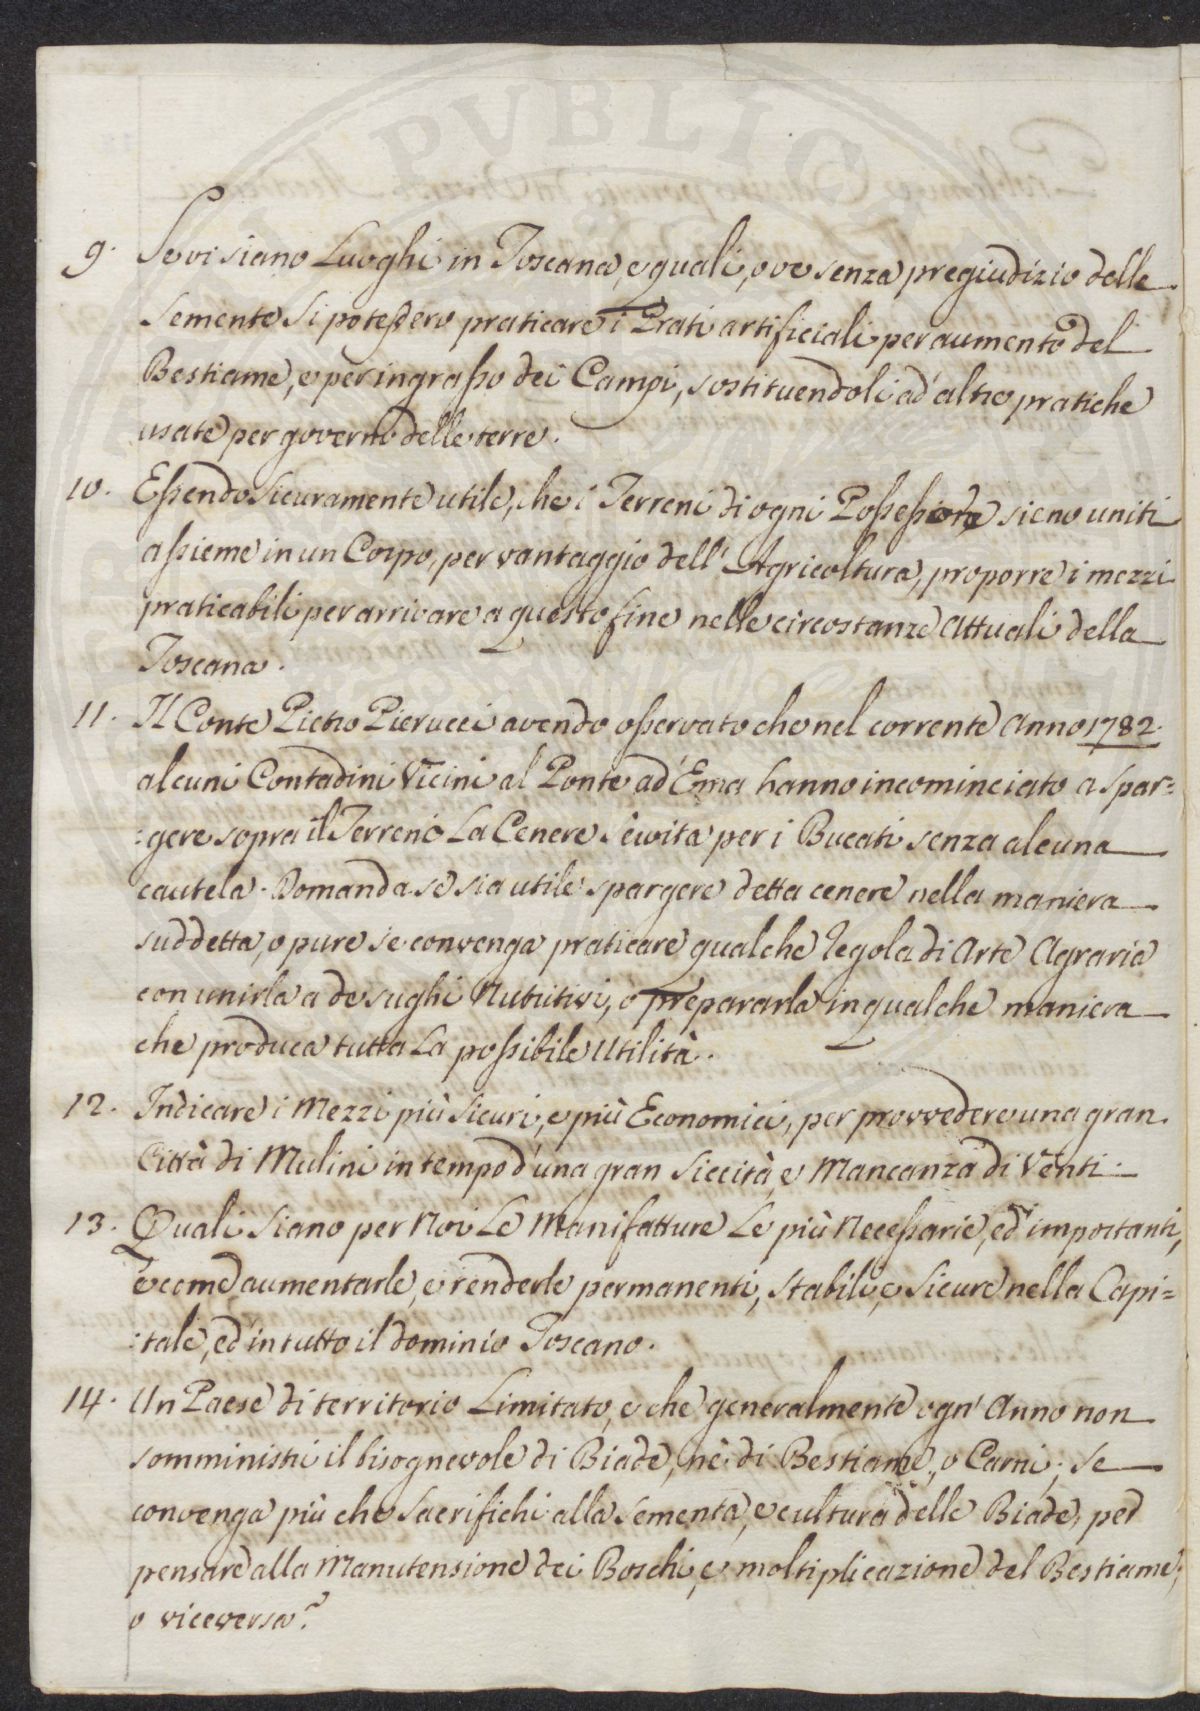 PVBLIC
9. Se vi siano Luoghi in Toscana, e quali, ove senza pregiudizio delle
Semente si potessero praticare i Prati artificiali per aumento del
Bestiame, e per ingrasso dei Campi, sostituendoli ad altre pratiche
usate per governo delle terre.
10. Essendo Sicuramente utile, che i Terreni di ogni Possessore sieno uniti
assieme in un Corpo, per vantaggio dell' Agricoltura, proporre i mezzi
praticabili per arrivare a questo fine nelle circostanze attuali della
Toscana.
11. Il Conte Pietro Pierucci avendo osservato che nel corrente Anno 1782.
alcuni Contadini Vicini al Ponte ad Ema hanno incominciato a spar=
:gere sopra il Terreno La Cenere servita per i Bucati senza alcuna
cautela. Domanda se sia utile spargere detta cenere nella maniera
suddetta, o pure se convenga praticare qualche regola di Arte Agraria
con unirla a de sughi Nutritivi, o prepararla in qualche maniera
che produca tutta La possibile Utilità.
12. Indicare i Mezzi più Sicuri, e più Economici, per provvedere una gran
Città di Mulini in tempo d'una gran Siccità, e Mancanza di Venti.
13. Quali Siano per Noi Le Manifatture Le più Necessarie, ed importanti,
e come aumentarle, e renderle permanenti, stabili, e Sicure nella Capi=
:tale, ed in tutto il dominio Toscano.
14. Un Paese di territorio Limitato, e che generalmente ogn' Anno non
somministri il bisognevole di Biade, nè di Bestiame, o Carni; Se
convenga più che Sacrifichi alla Sementa, e cultura delle Biade, per
pensare alla Manutensione dei Boschi, e moltiplicazione del Bestiame;
o viceversa?